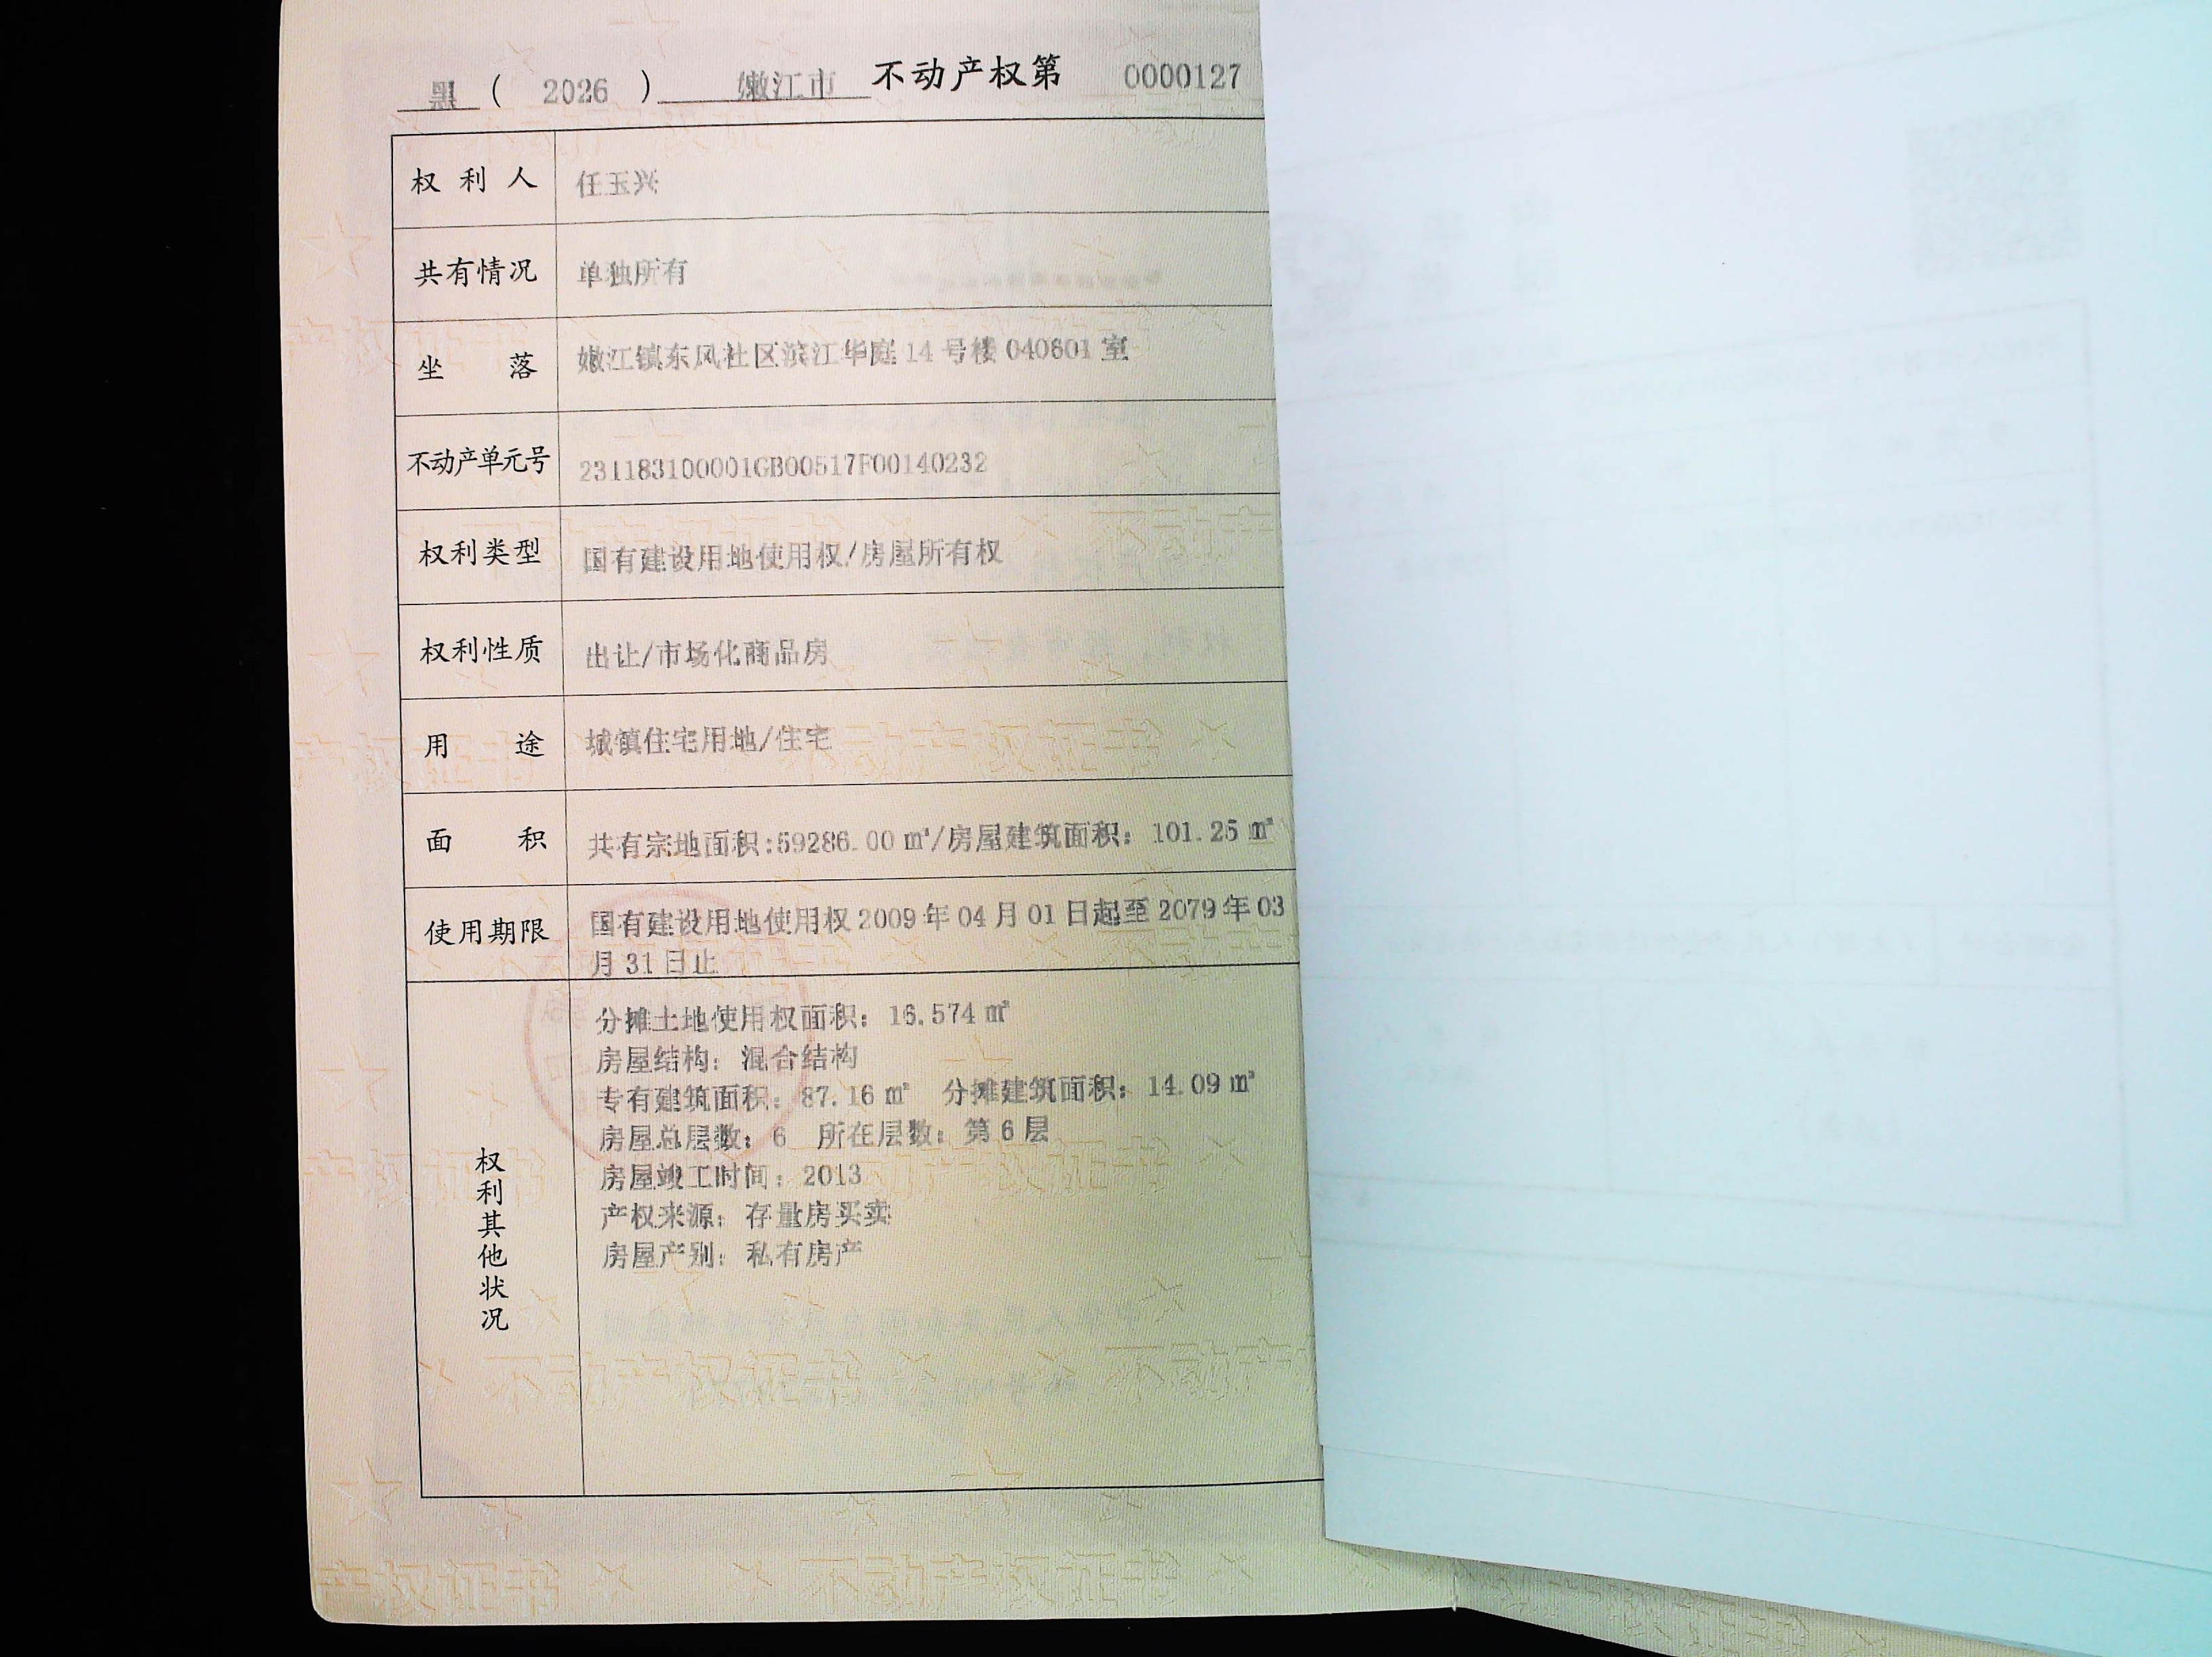 黑 ( 2026 ) 嫩江市 不动产权第 0000127
权利人 任玉兴
共有情况 单独所有
坐落 嫩江镇东风社区滨江华庭 14 号楼 040601 室
不动产单元号 231183100001GB00517F00140232
权利类型 国有建设用地使用权/房屋所有权
权利性质 出让/市场化商品房
用途 城镇住宅用地/住宅
面积 共有宗地面积:59286.00 ㎡/房屋建筑面积：101.25 ㎡
使用期限 国有建设用地使用权 2009 年 04 月 01 日起至 2079 年 03
月 31 日止
权利其他状况
分摊土地使用权面积：16.574 ㎡
房屋结构：混合结构
专有建筑面积：87.16 ㎡ 分摊建筑面积：14.09 ㎡
房屋总层数：6 所在层数：第 6 层
房屋竣工时间：2013
产权来源：存量房买卖
房屋产别：私有房产